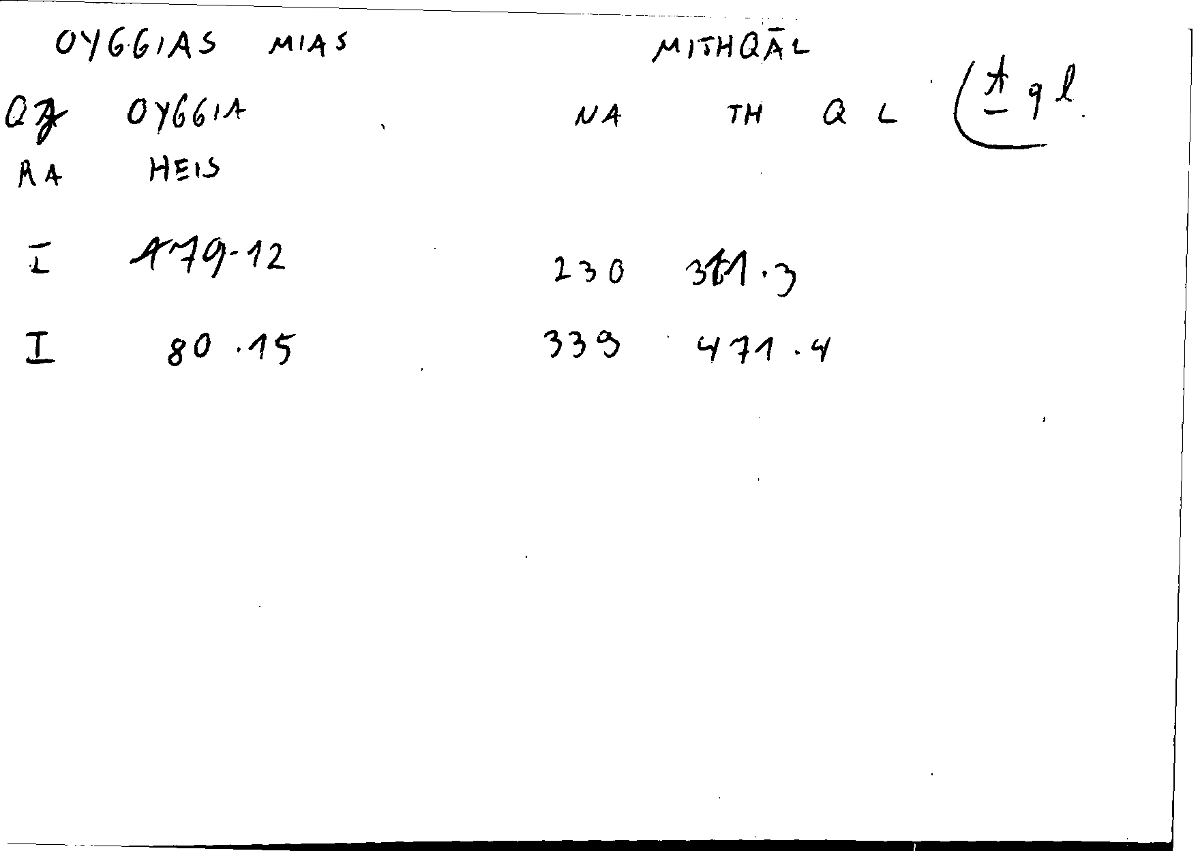 OYGGIAS MIAS MITHQĀL
OYGGIA NA TH Q L (ṯ q l.
RA HEIS
I 479.12 230 .3
I 80.15 339 471.4